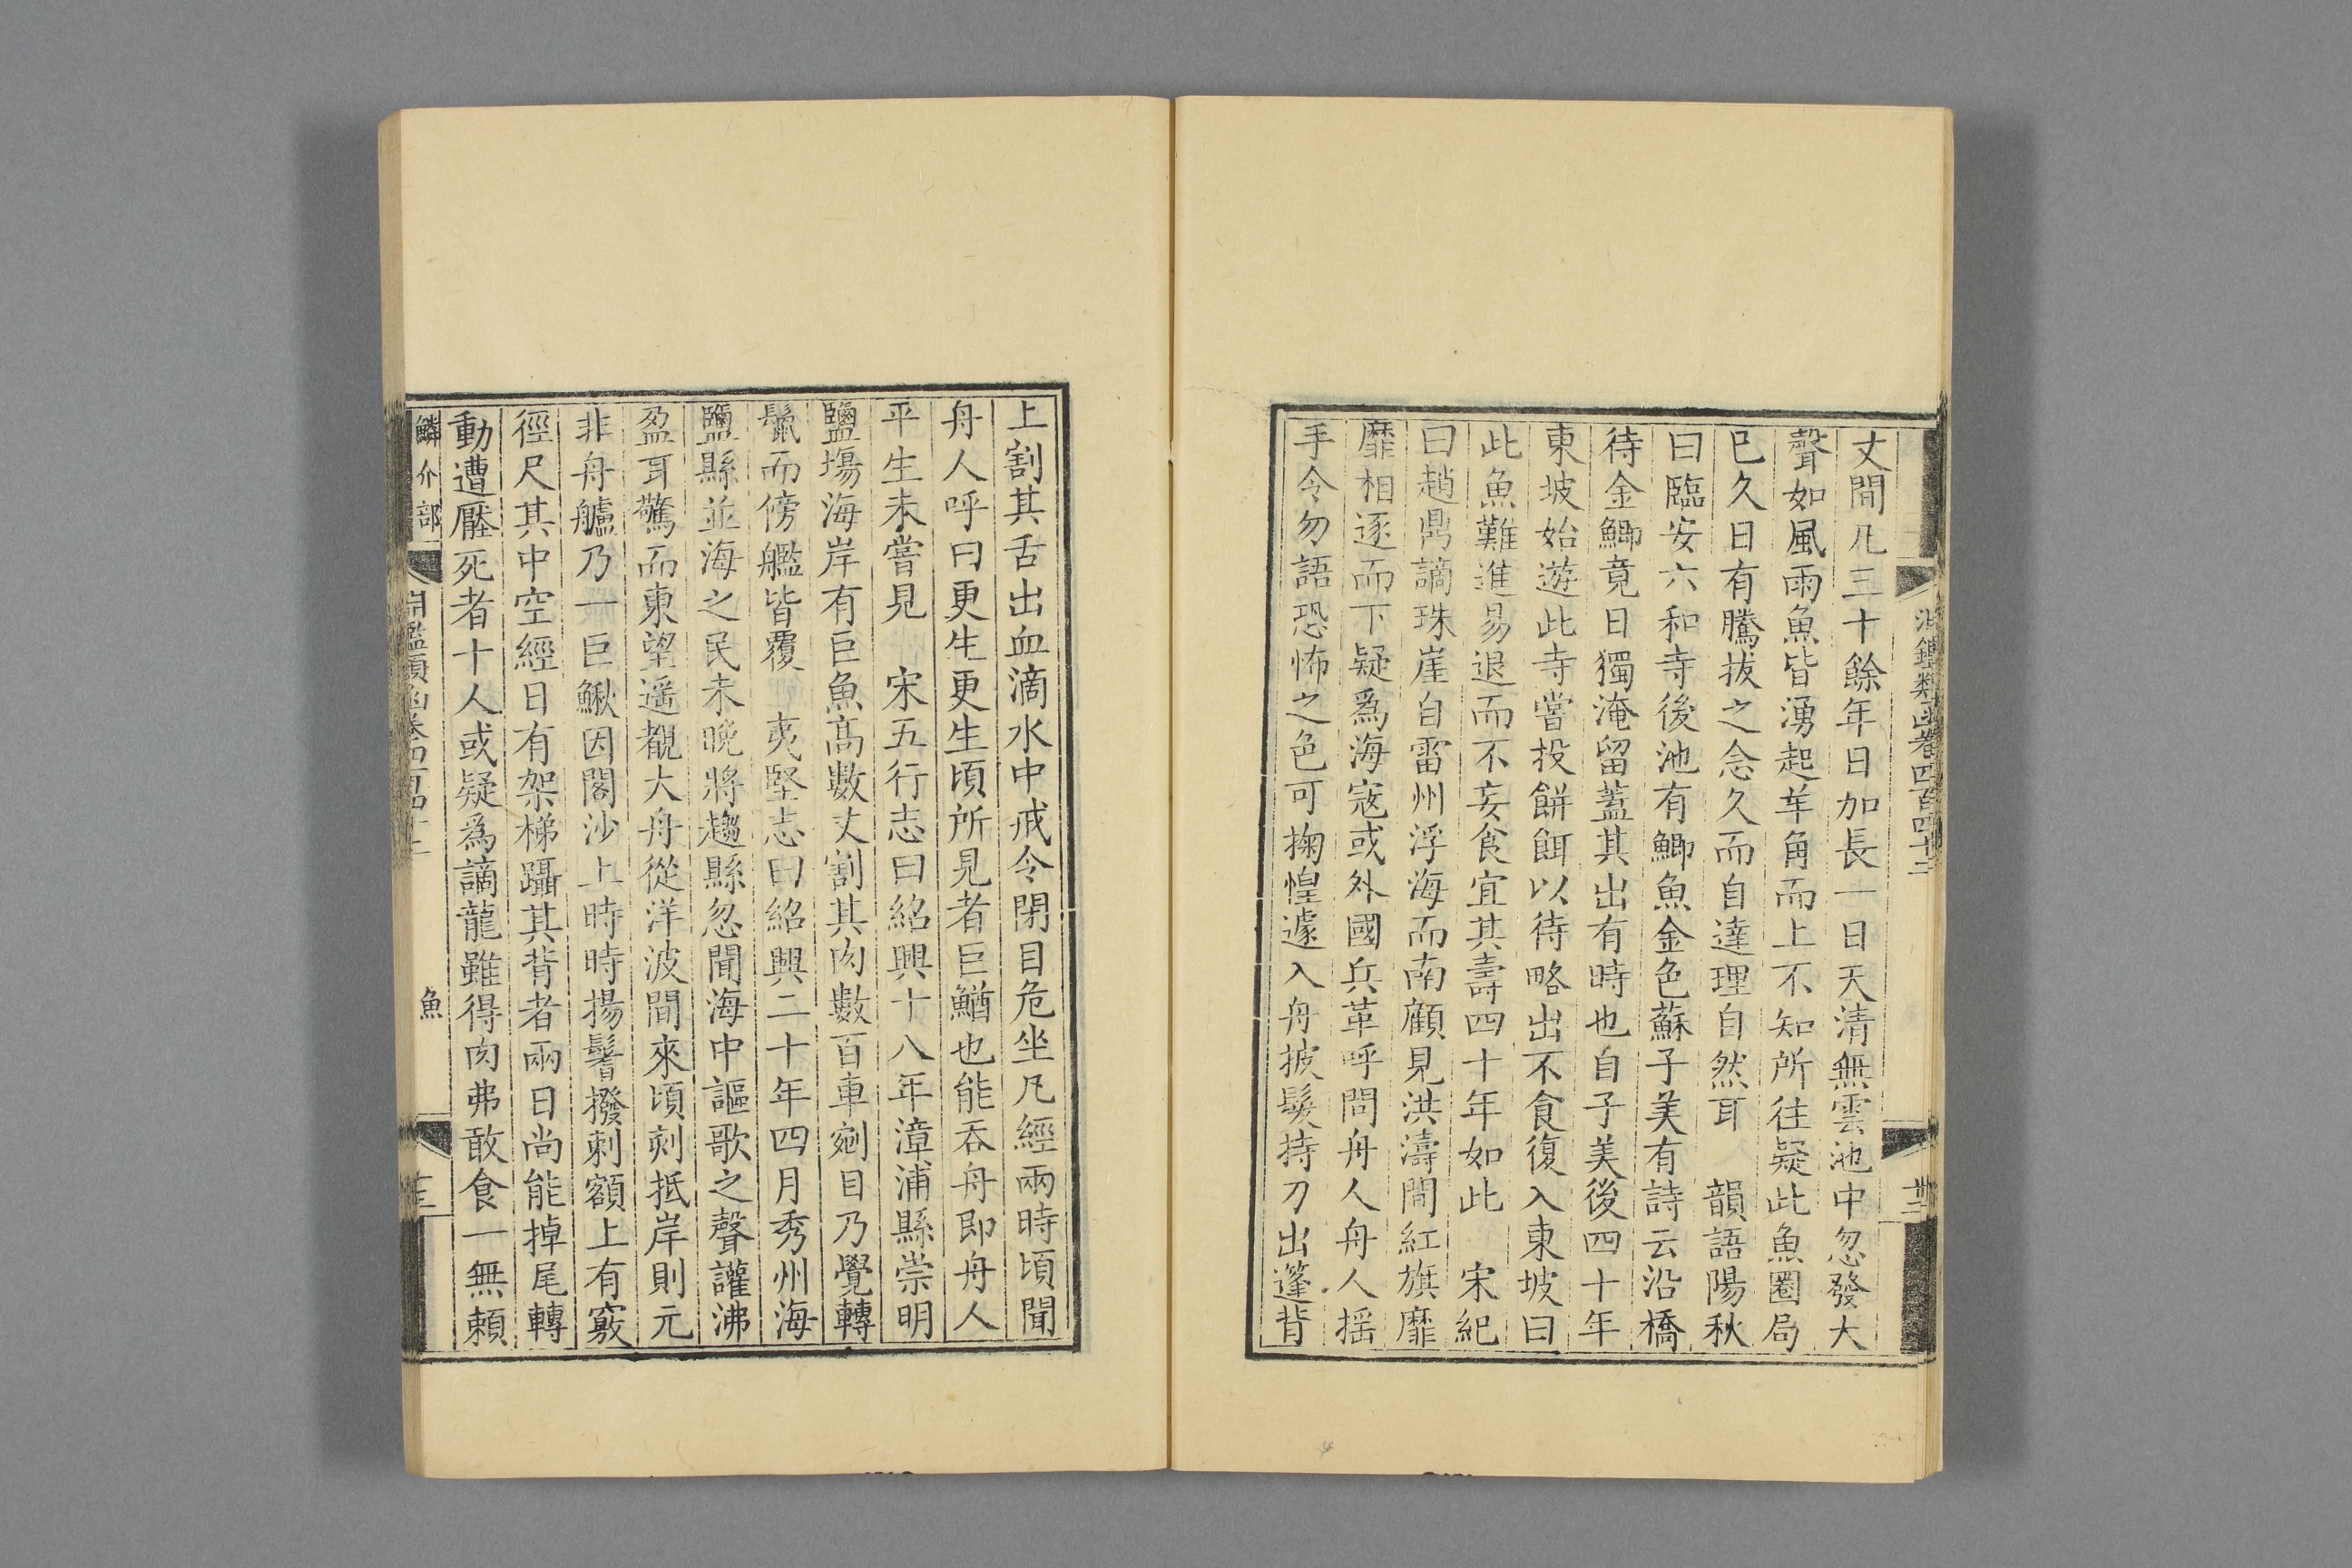 丈間凡三十餘年日加長一日天清無雲池中忽發大
聲如風雨魚皆湧起羊角而上不知所往疑此魚圈局
已久日有騰拔之念久而自達理自然耳　韻語陽秋
曰臨安六和寺後池有鯽魚金色蘇子美有詩云沿橋
待金鯽竟日獨淹留蓋其出有時也自子美後四十年
東坡始遊此寺嘗投餅餌以待略出不食復入東坡曰
此魚難進易退而不妄食宜其壽四十年如此　宋紀
曰趙鼎謫珠崖自雷州浮海而南顧見洪濤間紅旗靡
靡相逐而下疑爲海寇或外國兵革呼問舟人舟人摇
手令勿語恐怖之色可掬惶遽入舟披髮持刀出篷背
上割其舌出血滴水中戒令閉目危坐凡經兩時頃聞
舟人呼曰更生更生頃所見者巨鰌也能吞舟即舟人
平生未嘗見　宋五行志曰紹興十八年漳浦縣崇明
鹽塲海岸有巨魚高數丈割其肉數百車剜目乃覺轉
鬣而傍艦皆覆　夷堅志曰紹興二十年四月秀州海
鹽縣並海之民未晚將趨縣忽聞海中謳歌之聲讙沸
盈耳驚而東望遥覩大舟從洋波間來頃刻抵岸則元
非舟艫乃一巨鰍因閣沙上時時揚鬐撥刺額上有竅
徑尺其中空經日有架梯躡其背者兩日尚能掉尾轉
動遭壓死者十人或疑爲謫龍雖得肉弗敢食一無賴
鱗介部
魚